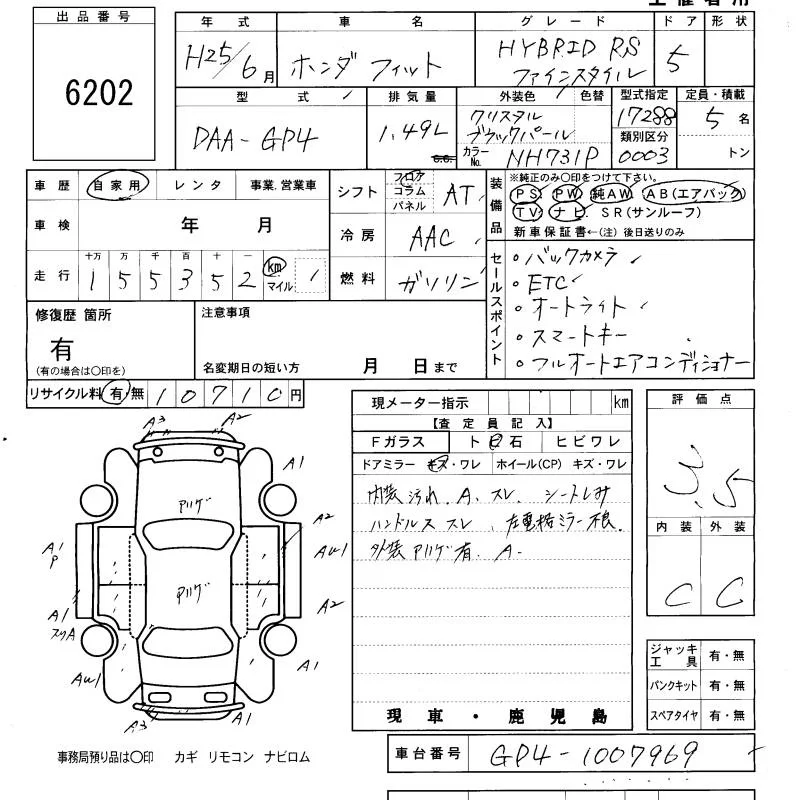 出品番号
6202
年式
H25/6月
車名
ホンダ フィット
グレード
HYBRID RS
ファインスタイル
ドア
5
形状
型式
DAA-GP4
排気量
1.49L
外装色
色替
クリスタル
ブラックパール
カラーNo.
NH731P
型式指定
17288
類別区分
0003
定員・積載
5名
トン
車歴
自家用
レンタ
事業.営業車
シフト
フロア
コラム
パネル
AT
装備品
※純正のみ〇印をつけて下さい。
PS PW 純AW AB(エアバック)
TV ナビ SR(サンルーフ)
新車保証書←(注) 後日送りのみ
車検
年 月
冷房
AAC
走行
十万 万 千 百 十 一
1 5 5 3 5 2
km
マイル
燃料
ガソリン
セールスポイント
・バックカメラ
・ETC
・オートライト
・スマートキー
・フルオートエアコンディショナー
修復歴 箇所
有
(有の場合は〇印を)
注意事項
名変期日の短い方 月 日まで
リサイクル料 有 無 10710円
現メーター指示 km
【査定員記入】
Fガラス
ト 石
ヒビワレ
ドアミラー キズ・ワレ
ホイール(CP) キズ・ワレ
内装 汚れ A、スレ シートしみ
ハンドルス スレ
外装 有 A-
現車・鹿児島
評価点
3.5
内装 外装
C C
ジャッキ
工具
有・無
パンクキット 有・無
スペアタイヤ 有・無
A3 A2
A1
A2
A1
P
A1
A2
A1
A1
A3 A1
事務局預り品は〇印 カギ リモコン ナビロム
車台番号
GP4-1007969